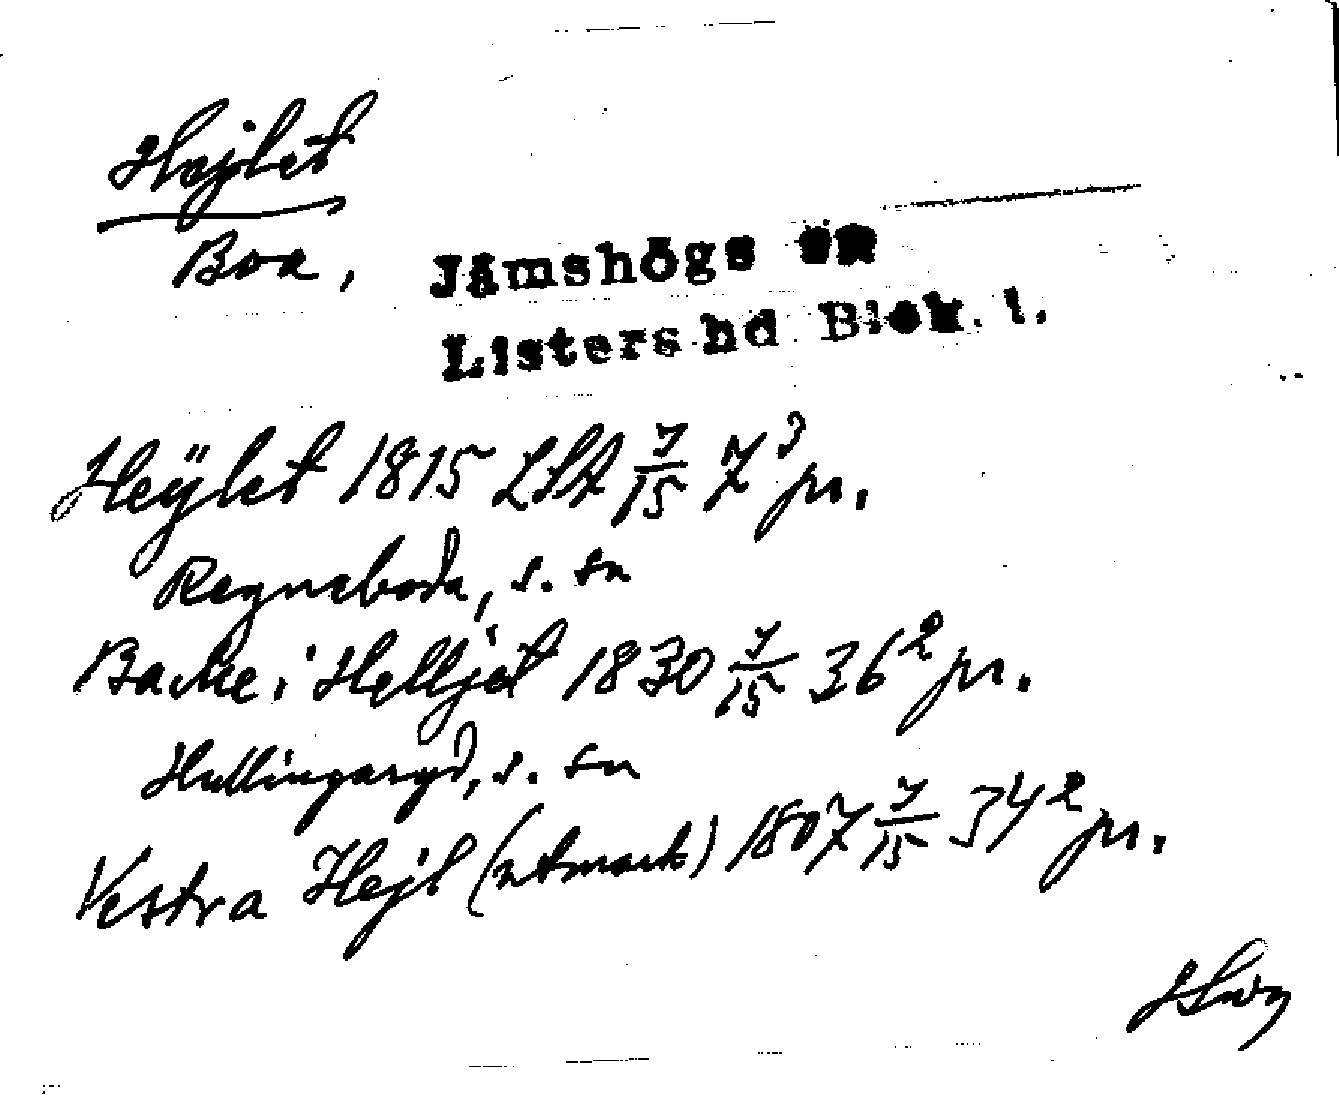 Hejlet
Boa,
Jämshögs sn
Listers hd Blek. l.
Heÿlet 1815 LSA 7/15 7³ pr.
Regneboda, s. sn
Backe i Helljet 1830 7/15 36² pr.
Hullingaryd, s. sn
Vestra Hejl (utmark) 1807 7/15 34² pr.